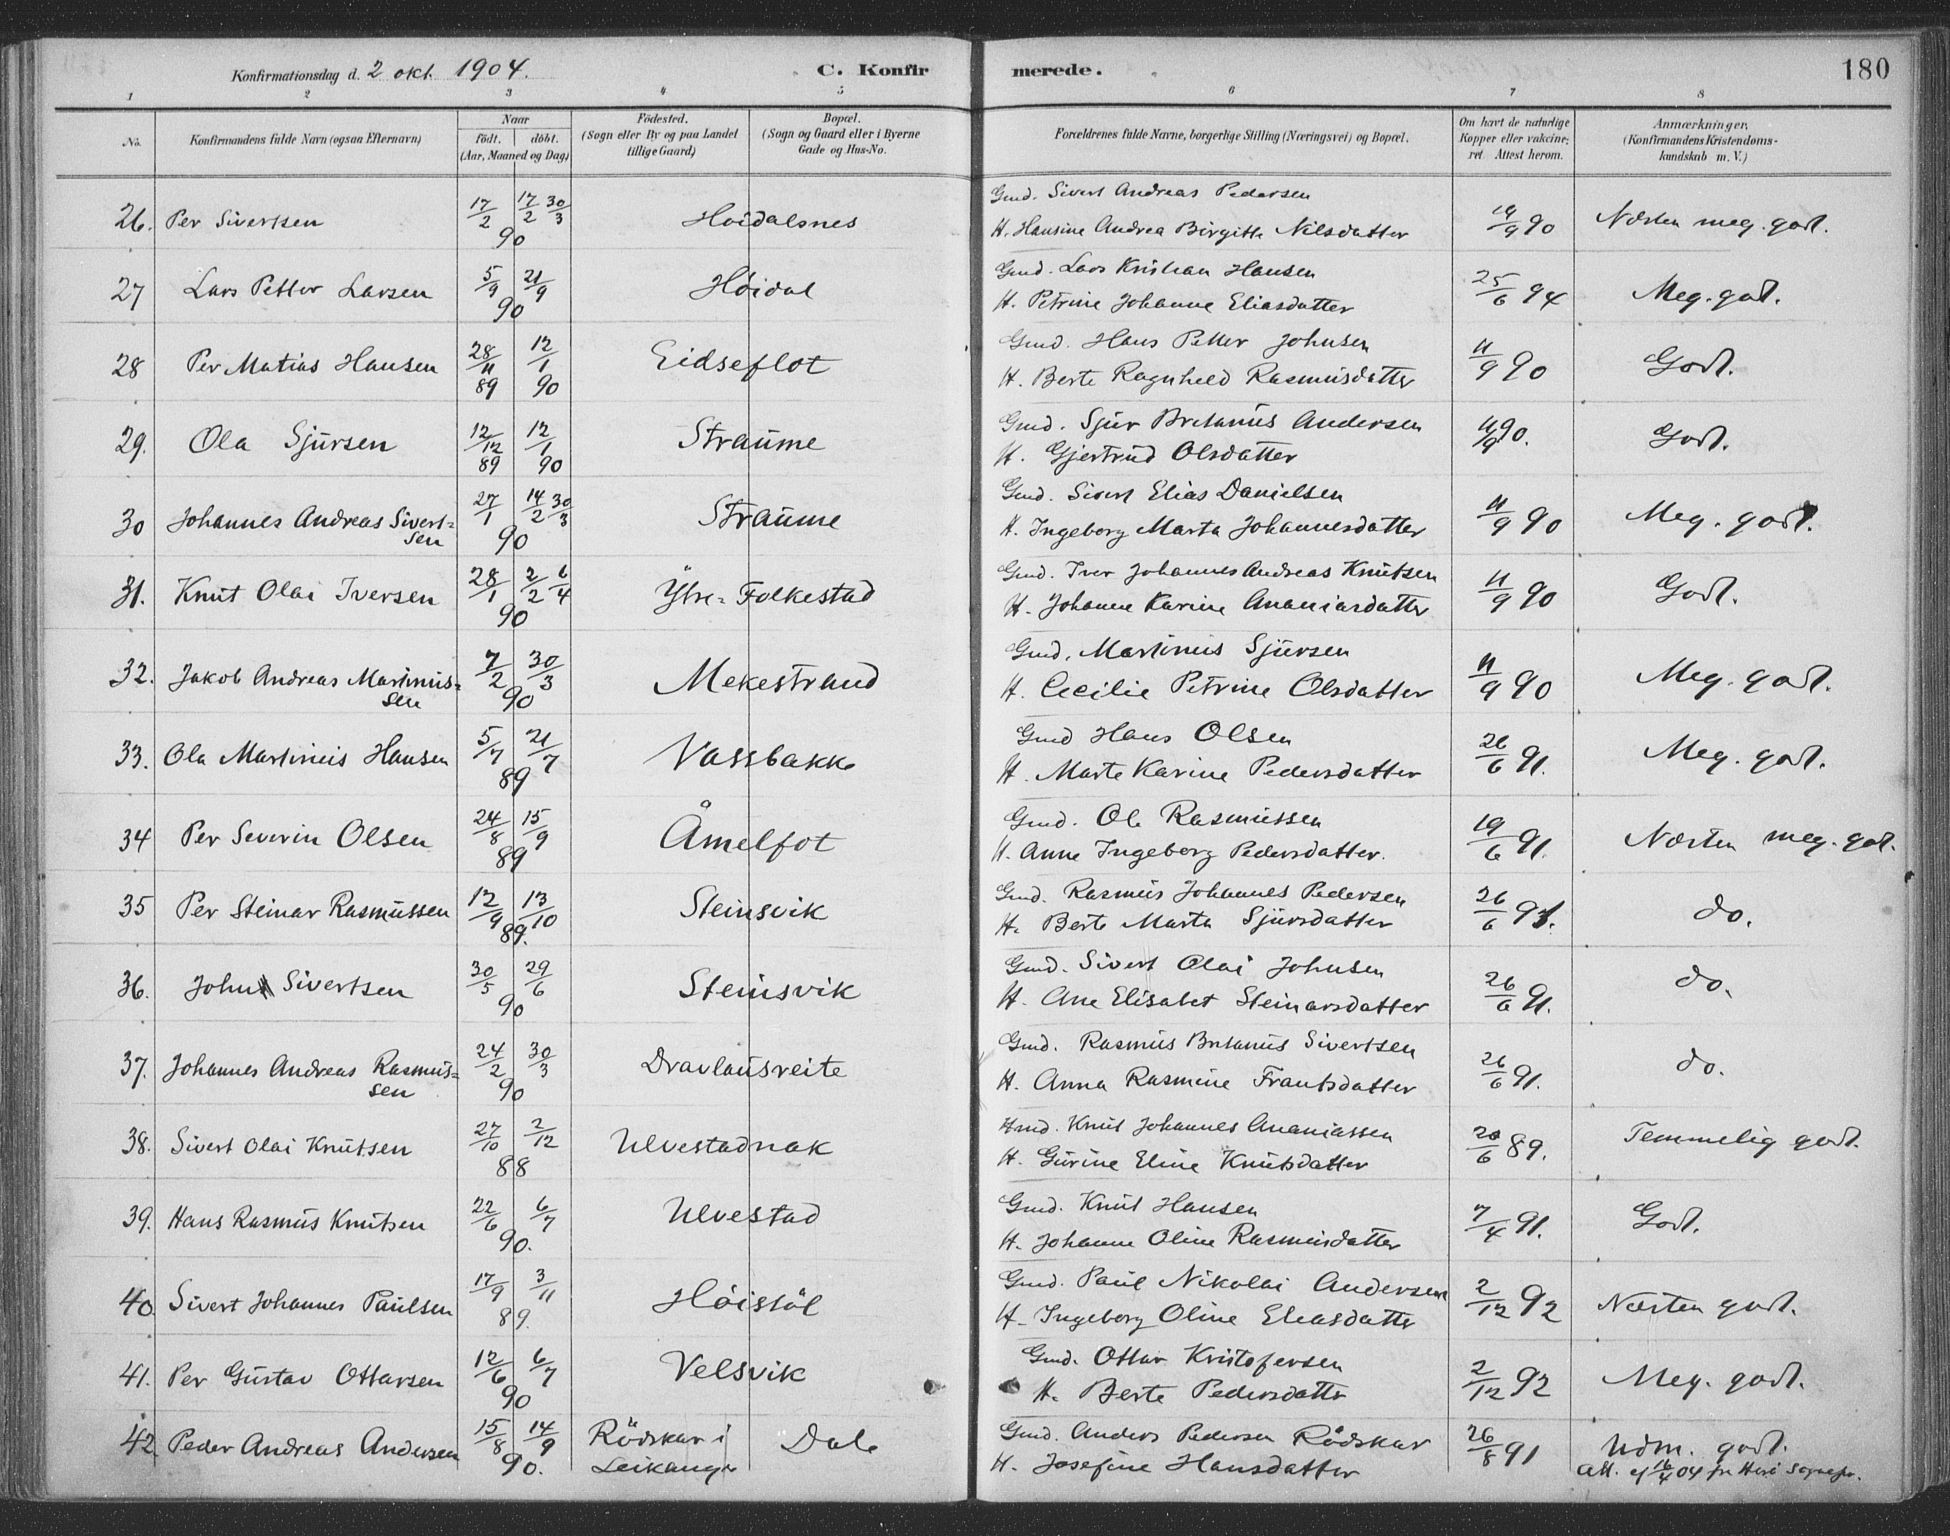 Konfirmationsdag d. 2 okt. 1904. C. Konfirmerede. 180
1 2 3 4 5 6 7 8
No. Konfirmandens fulde Navn (ogsaa Efternavn) Naar født. døbt. (Aar, Maaned og Dag) Fødested. (Sogn eller By og paa Landet tillige Gaard) Bopæl. (Sogn og Gaard eller i Byerne Gade og Hus-No. Forældrenes fulde Navne, borgerlige Stilling (Næringsvei) og Bopæl. Om havt de naturlige Kopper eller vakcineret. Attest herom. Anmærkninger. (Konfirmandens Kristendomskundskab m. V.)
26. Per Sivertsen 17/2 17/2 30/3 90 Hoidalsnes Gmd. Sivert Andreas Pedersen
H. Hansine Andrea Birgitte Nilsdatter 19/9 90 Næsten meg. godt.
27 Lars Petter Larsen 5/9 21/9 90 Høidal Gmd. Lars Kristian Hansen
H. Petrine Johanne Eliasdatter 25/6 94 Meg. godt.
28 Per Matias Hansen 28/11 89 12/1 90 Eidseflot Gmd. Hans Petter Johnsen
H. Berte Ragnhild Rasmusdatter 11/9 90 Godt.
29. Ola Sjursen 12/12 89 12/1 90 Straume Gmd. Sjur Bretanus Andersen
H. Gjertrud Olsdatter 11/9 90. Godt.
30 Johannes Andreas Sivert=
sen 27/1 14/2 30/3 90 Straume Gmd. Sivert Elias Danielsen
H. Ingeborg Marta Johannesdatter 11/9 90 Meg. godt.
31. Knut Olai Iversen 28/1 2/2 6/4 90 Ytre-Folkestad Gmd. Iver Johannes Andreas Knutsen
H. Johanne Karine Ananiasdatter 11/9 90 Godt.
32. Jakob Andreas Martinus=
sen 7/2 30/3 90 Mekestrand Gmd. Martinus Sjursen
H. Cecilie Petrine Olsdatter 11/9 90 Meg. godt.
33. Ola Martinus Hansen 5/7 21/7 89 Vassbakke Gmd Hans Olsen
H. Marte Karine Pedersdatter 26/6 91. Meg. godt.
34 Per Severin Olsen 24/8 15/9 89 Åmelfot Gmd. Ole Rasmussen
H. Anne Ingeborg Pedersdatter. 19/6 91. Næsten meg. godt.
35 Per Steinar Rasmussen 12/9 13/10 89. Steinsvik Gmd. Rasmus Johannes Pedersen
H. Berte Marta Sjursdatter 26/6 91. do.
36. John Sivertsen 30/5 29/6 90 Steinsvik Gmd. Sivert Olai Johnsen
H. Ane Elisabet Steinarsdatter 26/6 91. do.
37. Johannes Andreas Rasmus=
sen 24/2 30/3 90 Dravlausreite Gmd. Rasmus Bretanus Sivertsen
H. Anna Rasmine Frantsdatter 26/6 91. do.
38. Sivert Olai Knutsen 27/10 2/12 88 Ulvestadnak Hmd. Knut Johannes Ananiassen
H. Gurine Eline Knutsdatter /6 89. Temmelig godt.
39. Hans Rasmus Knutsen 22/6 6/7 90. Ulvestad Gmd. Knut Hansen
H. Johanne Oline Rasmusdatter 7/4 91. Godt.
40 Sivert Johannes Paulsen 17/9 3/11 89. Høistøl Gmd. Paul Nikolai Andersen
H. Ingeborg Oline Eleasdatter 2/12 92 Næsten godt.
41. Per Gustav Ottarsen 12/6 6/7 90 Velsvik Gmd. Ottar Kristofersen
H. Berte Pedersdatter 2/12 92 Meg. godt.
42 Peder Andreas Andersen 15/8 14/9 90. Rödskar i
Leikanger Dale Gmd. Anders Pedersen Rödskar
H. Josefine Hansdatter 26/8 91 Udm. godt.
Att. af 16/4 04 fra Herö Sognepr.